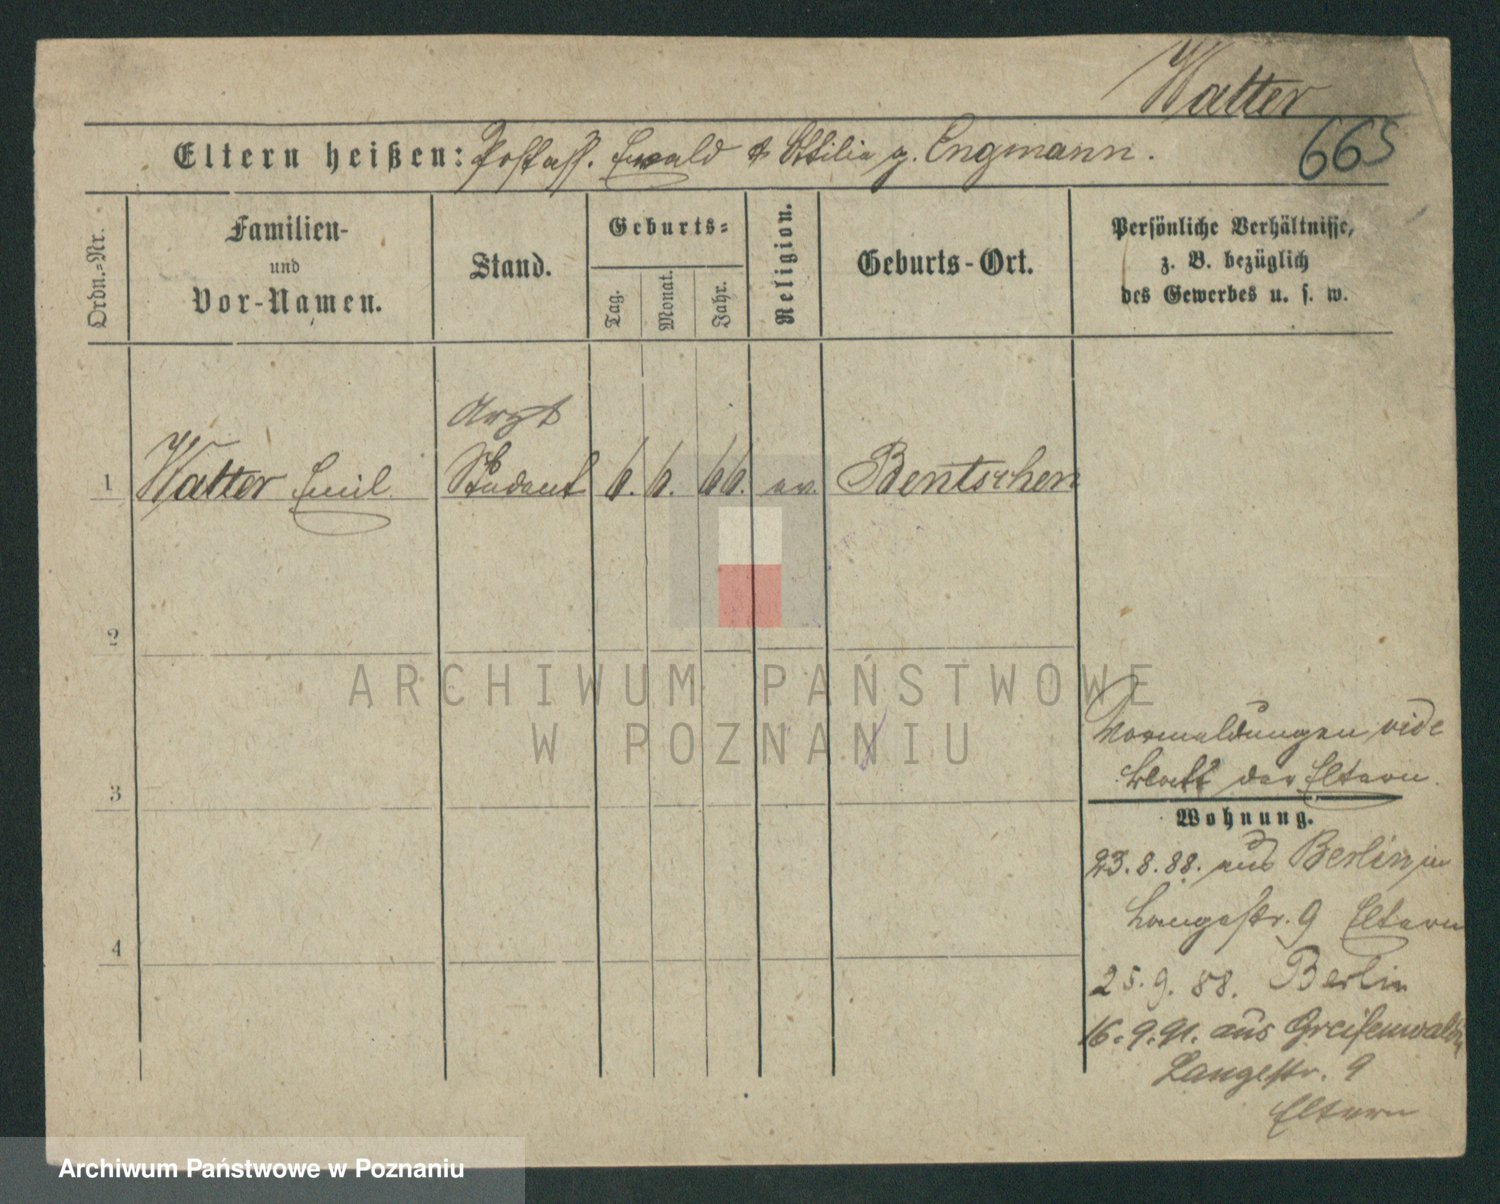 Walter
665
Eltern heißen: Postass. Ewald & Ottilie g. Engmann.
Ordn.=Nr.
Familien-
und
Vor-Namen.
Stand.
Geburts=
Tag.
Monat.
Jahr.
Religion.
Geburts-Ort.
Persönliche Verhältnisse,
z. B. bezüglich
des Gewerbes u. s. w.
Arzt
1 Walter Emil Student 6. 6. 66. ev. Bentschen
2
3
4
Vormeldungen vide
Blatt der Eltern.
Wohnung.
23.8.88. aus Berlin in
Langestr. 9 Eltern
25.9.88. Berlin
16.9.91. aus Greifenwald
Langestr. 9
Eltern
ARCHIWUM PAŃSTWOWE
W POZNANIU
Archiwum Państwowe w Poznaniu